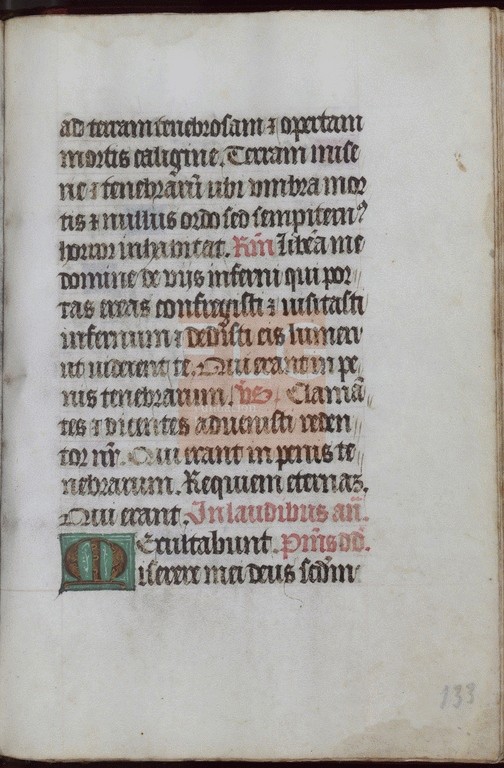 ad terram tenebrosam ⁊ opertam
mortis caligine. Terram mise
rie ⁊ tenebrarū ubi vmbra mor
tis ⁊ nullus ordo sed sempiternꝰ
horror inhabitat. Rm̄ libera me
domine de vijs inferni qui por
tas ereas confregisti ⁊ uisitasti
infernum ⁊ dedisti eis lumen
ut uiderent te. Qui erant in pe
nis tenebrarum. vs Clamā
tes ⁊ dicentes aduenisti reden
tor nr̄. Qui erant in penis te
nebrarum. Requiem eternaz.
Qui erant. In laudibus an̄.
Exultabunt. Pm̄s dd̄.
Miserere mei deus scdm
133